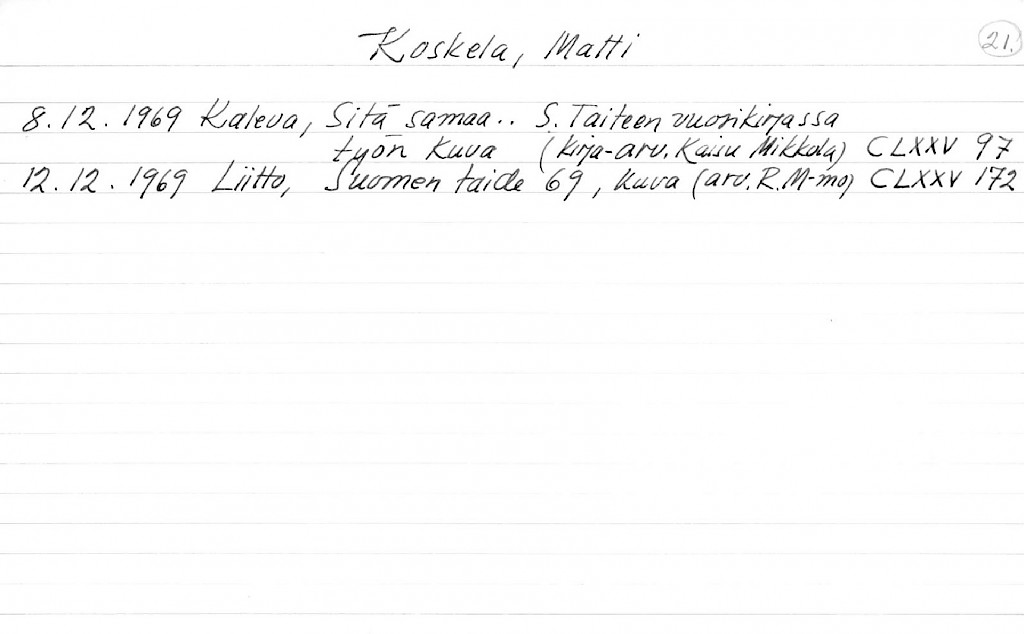 Koskela, Matti
21.
8.12.1969 Kaleva, Sitä samaa.. S. Taiteen vuosikirjassa
työn kuva (kirja-arv. Kaisu Mikkola) CLXXV 97
12.12.1969 Liitto, Suomen taide 69, kuva (arv. R. M-mo) CLXXV 172